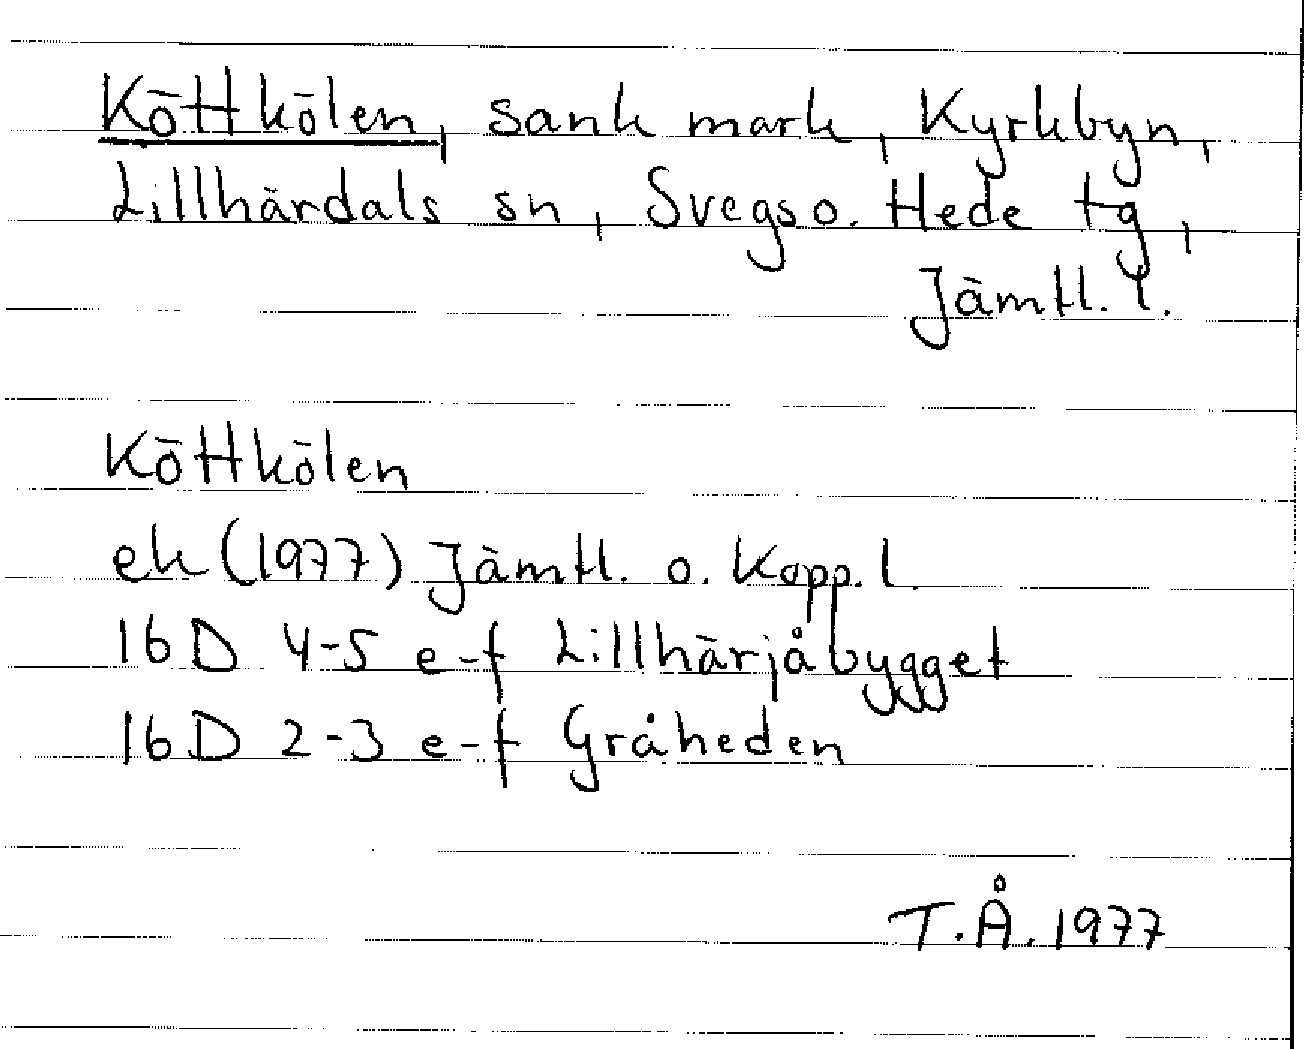 Köttkölen, sank mark, Kyrkbyn,
Lillhärdals sn, Svegs o. Hede tg,
Jämtl. l.
Köttkölen
ek (1977) Jämtl. o. Kopp. l.
16D 4-5 e-f Lillhärjåbygget
16D 2-3 e-f Gråheden
T.Å. 1977